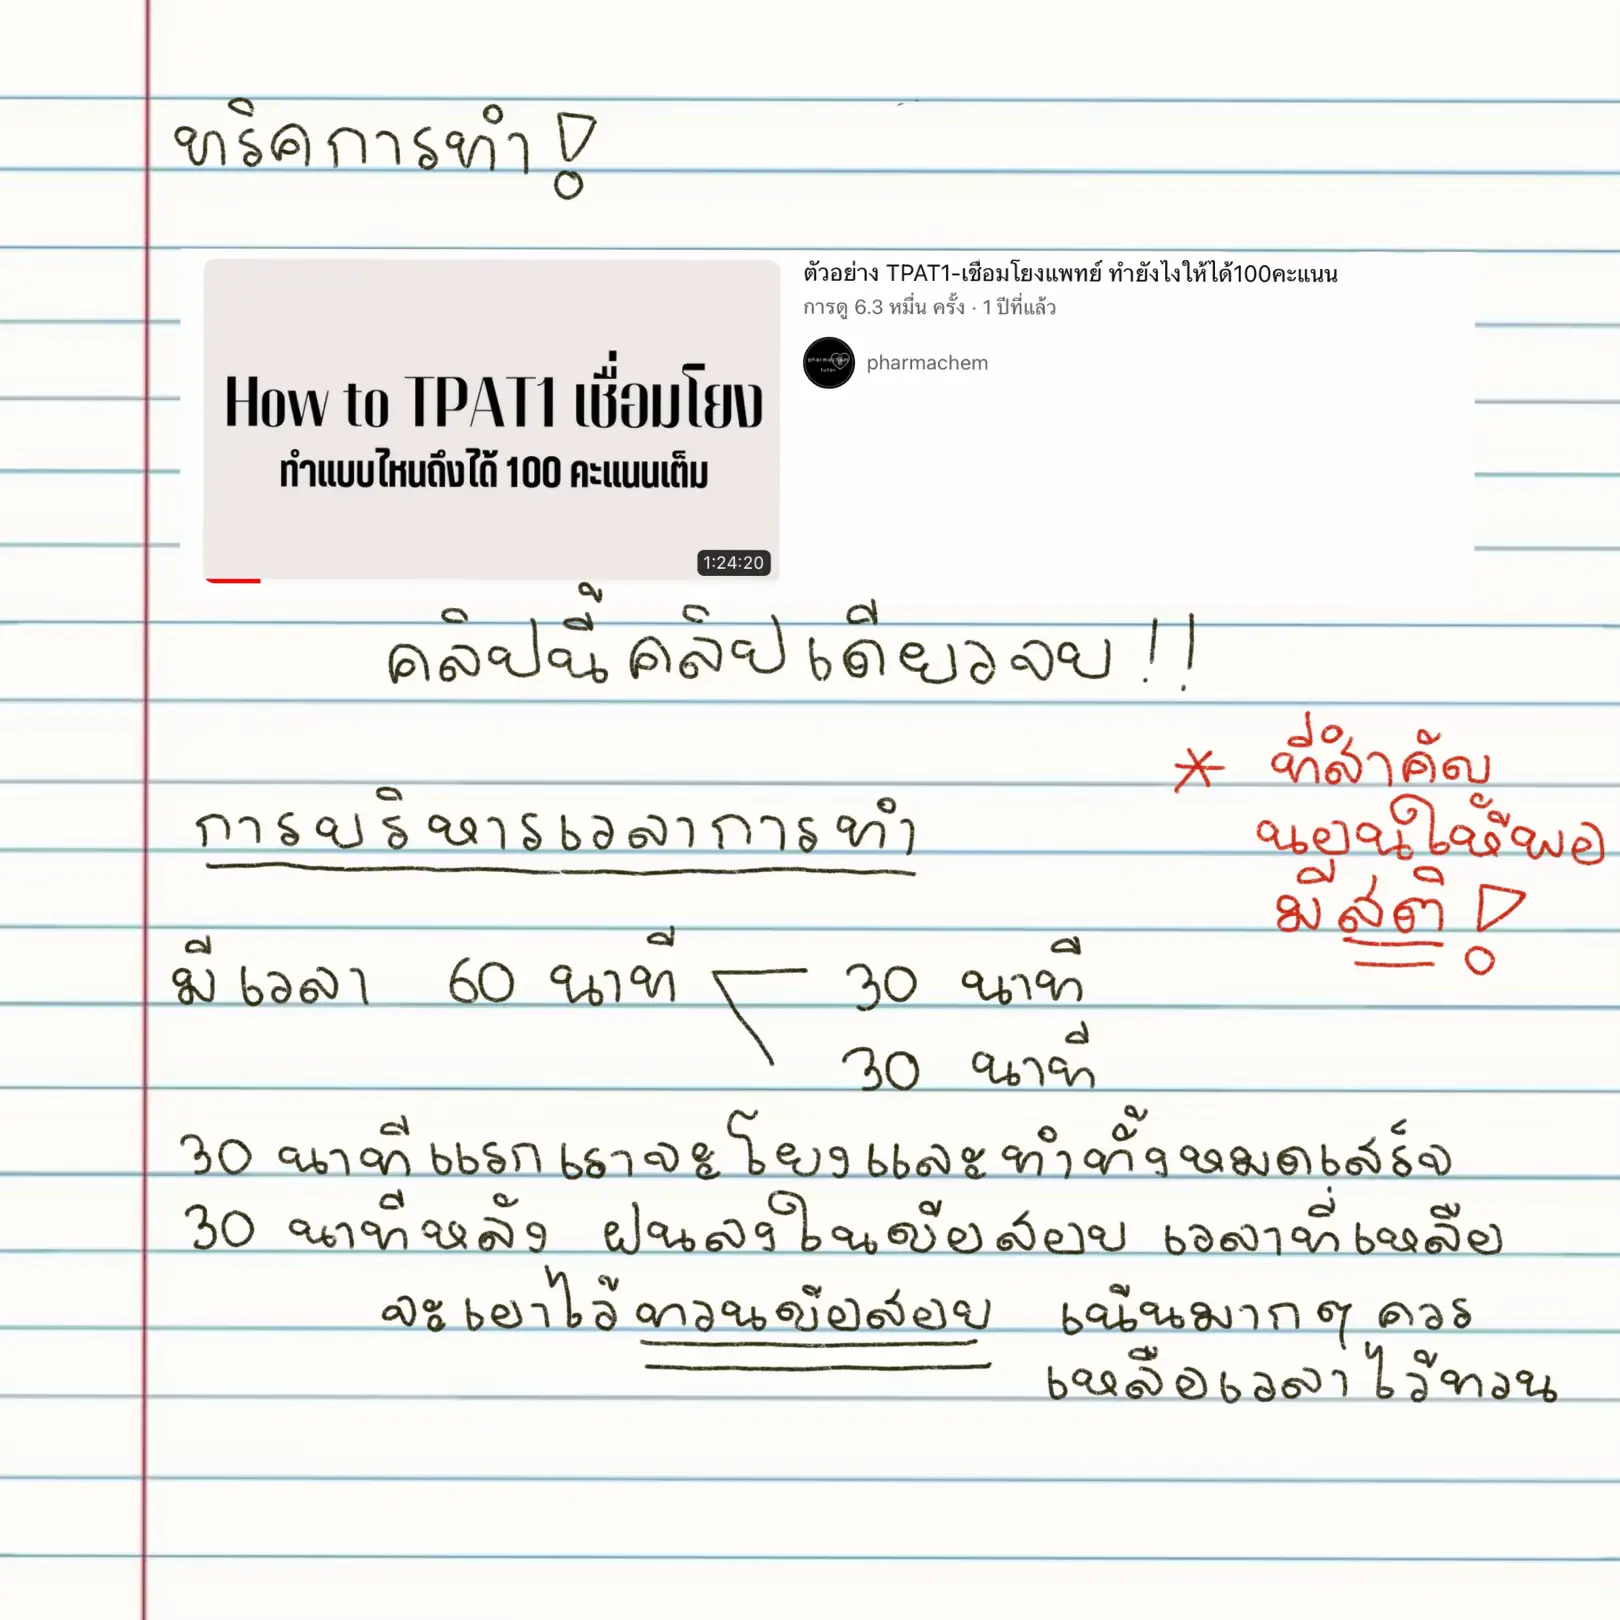 ทริคการทำ!
ตัวอย่าง TPAT1-เชื่อมโยงแพทย์ ทำยังไงให้ได้100คะแนน
การดู 6.3 หมื่น ครั้ง · 1 ปีที่แล้ว
pharmachem tutor
pharmachem
How to TPAT1 เชื่อมโยง
ทำแบบไหนถึงได้ 100 คะแนนเต็ม
1:24:20
คลิปนี้คลิปเดียวจบ!!
* ที่สำคัญ
นอนให้พอ
มีสติ!
การบริหารเวลาการทำ
มีเวลา 60 นาที 30 นาที
30 นาที
30 นาทีแรกเราจะโยงและทำทั้งหมดเสร็จ
30 นาทีหลัง ฝนลงในข้อสอบ เวลาที่เหลือ
จะเอาไว้ทวนข้อสอบ เน้นมากๆ ควร
เหลือเวลาไว้ทวน